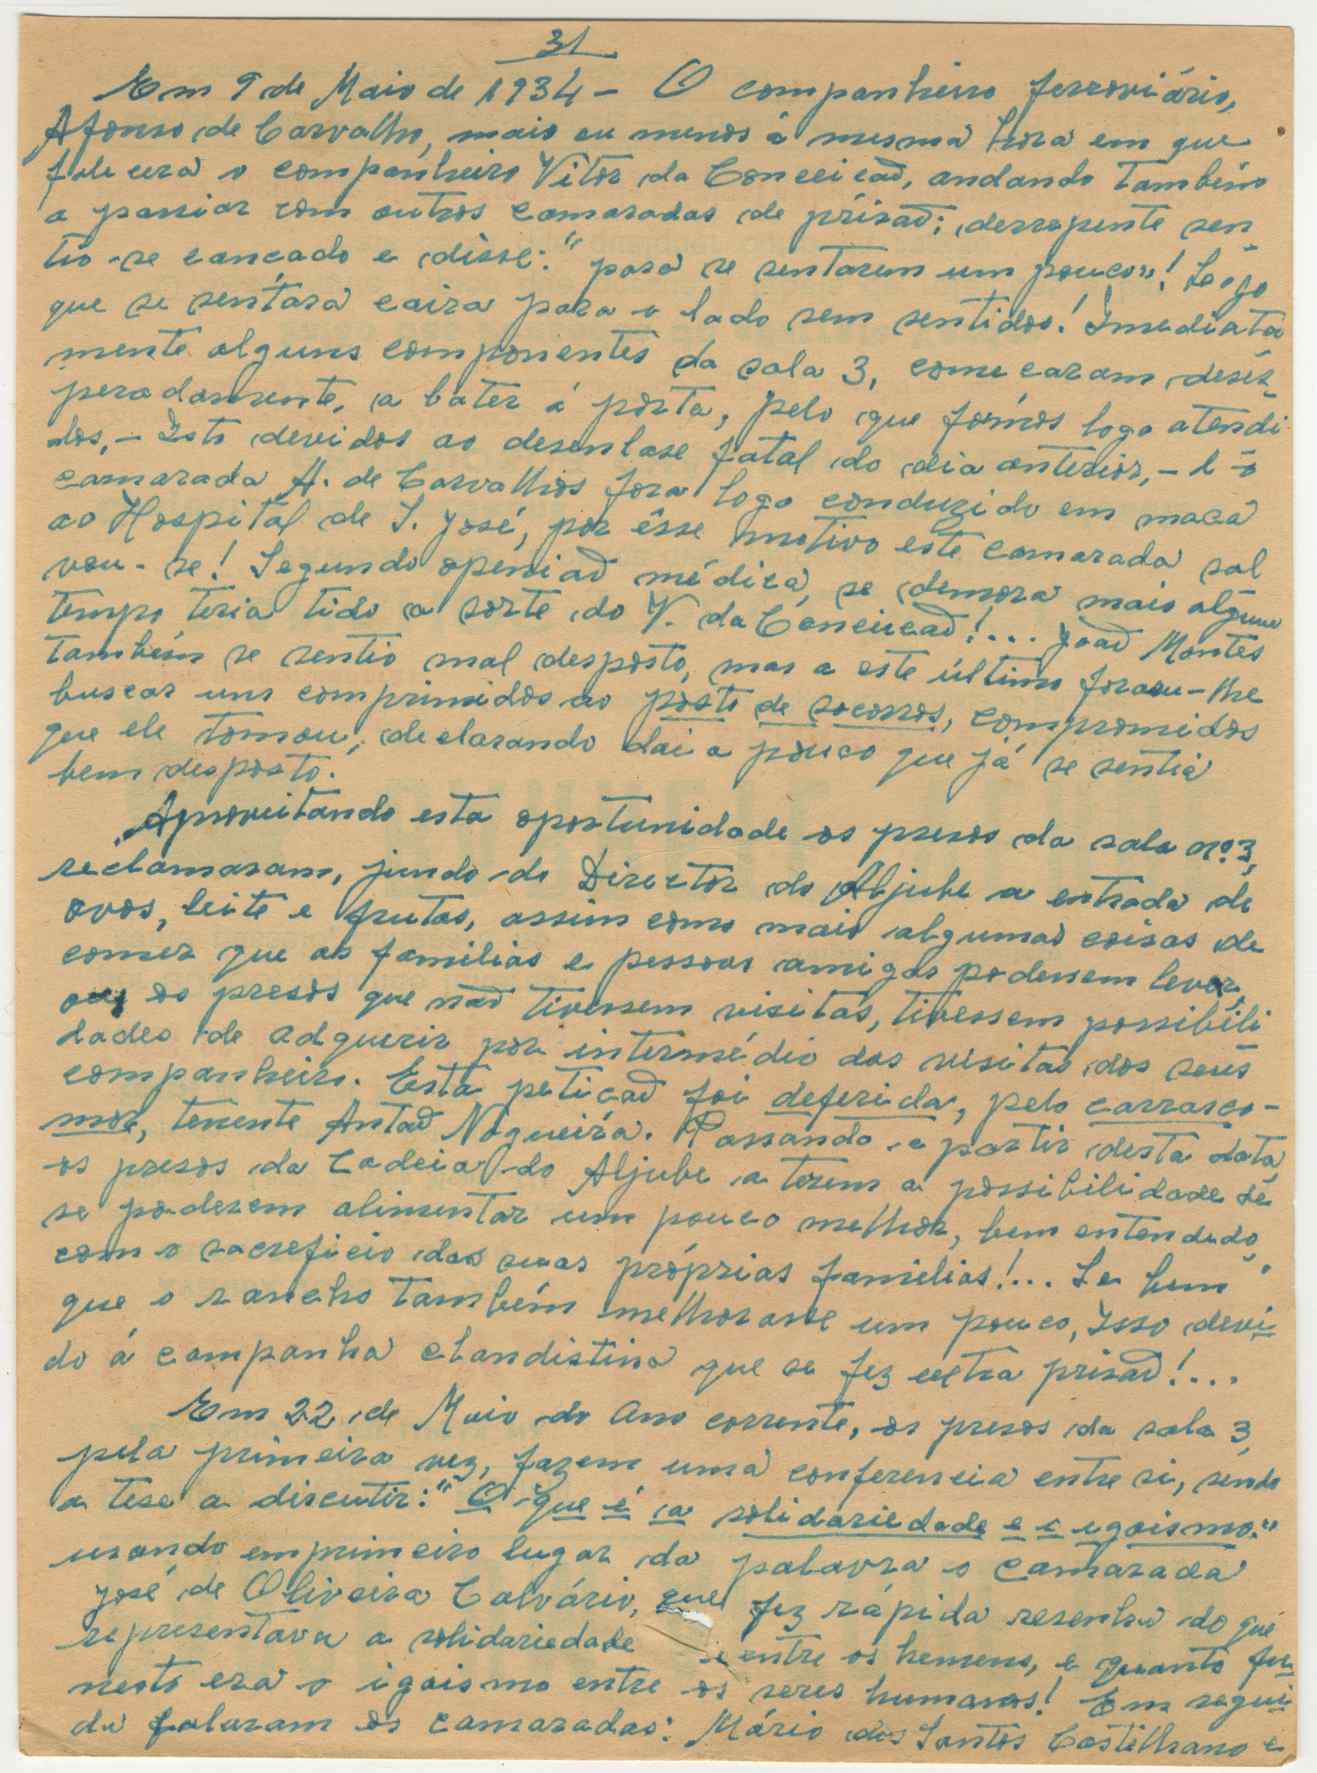 31
Em 9 de Maio de 1934 - O companheiro ferroviário,
Afonso de Carvalho, mais ou menos á mesma hora em que
falecera o companheiro Vitor da Conceicaõ, andando tambêm
a passiar com outros camaradas de prisaõ; derrepente sen
tio-se cancado e disse: "para se sentarem um pouco"! Logo
que se sentára caira para o lado sem sentidos! Imediata
mente alguns componentes da sala 3, comecaram deses-
peradamente, a bater á porta, pelo que fomos logo atendi
dos, - Isto devidos ao desenlase fatal do dia anterior, - e o
camarada A. de Carvalhos fora logo conduzido em maca
ao Hospital de S. José, por êsse motivo este camarada sal
vou-se! Segundo openiaõ médica, se demora mais algum
tempo teria tido a sorte do V. da Conceicaõ!... Joaõ Montes
tambêm se sentio mal desposto, mas a este último foram-lhe
buscar uns comprimidos ao posto de socorros, compromidos
que ele tomou, declarando dai a pouco que já se sentia
bem desposto.
Aproveitando esta oportunidade os presos da sala nº 3,
reclamaram, jundo do Director do Aljube a entrada de
ovos, leite e frutas, assim como mais algumas coisas de
comer que as familias e pessoas amigas podessem levar,
ou os presos que naõ tivessem visitas, tivessem possibili
dades de adquerir por intermédio das visitas dos seus
companheiro. Esta peticaõ foi deferida, pelo carrasco-
mor, tenente Antaõ Nogueira. Passando a partir desta data
os presos da Cadeia do Aljube a terem a possibilidade de
se poderem alimentar um pouco melhor, bem entendido,
com o sacreficio das suas próprias familias!... Se bem
que o rancho tambêm melhorasse um pouco, Isso devi-
do á campanha clandistina que se fez extra prisaõ!...
Em 22 de Maio do ano corrente, os presos da sala 3,
pela primeira vez, fazem uma conferencia entre si, sendo
a tese a discutir: "O que é a solidariedade e o igoismo."
usando emprimeiro lugar da palavra o camarada
José de Oliveira Calvário, que fez rápida resenha do que
representava a solidariedade entre os homens, e quanto fu-
nesto era o igoismo entre os seres humanos! Em segui-
da falaram os camaradas: Mário dos Santos Castelhano e